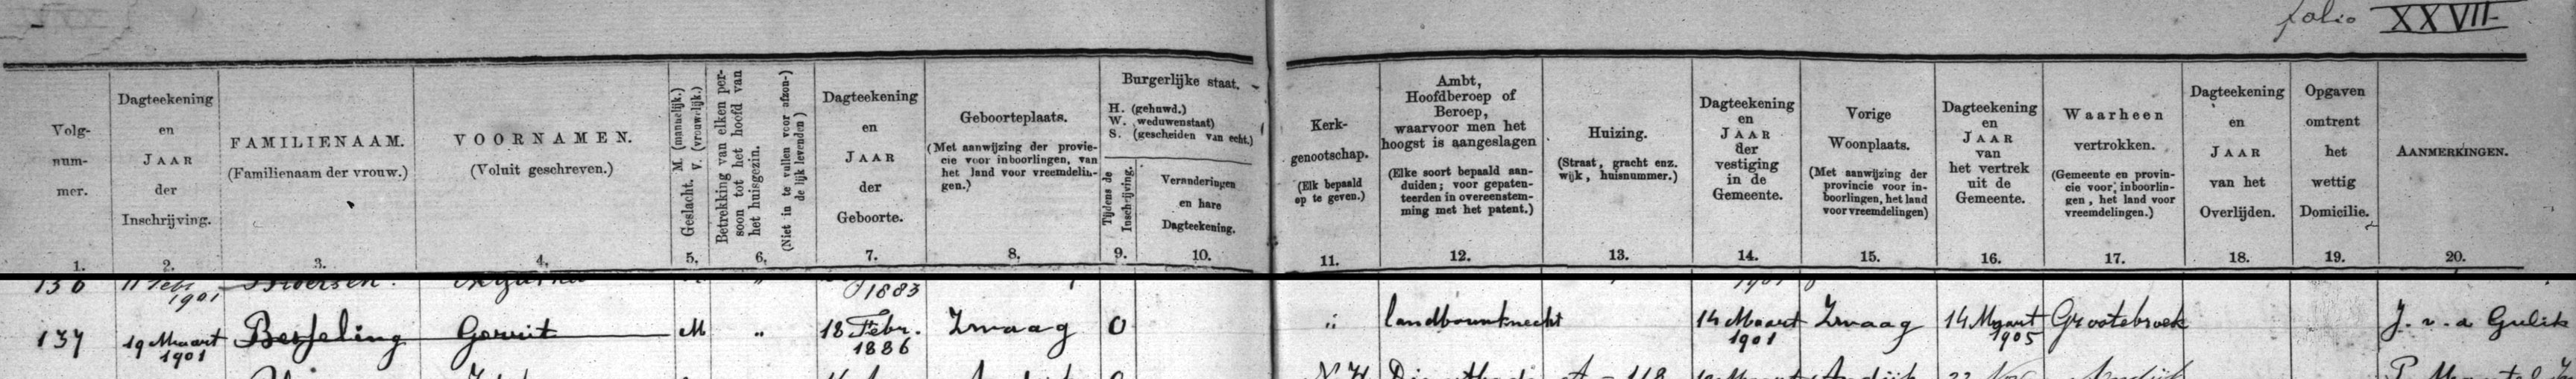 folio XXVII
Volg-
num-
mer.
1.
Dagteekening
en
JAAR
der
Inschrijving.
2.
FAMILIENAAM.
(Familienaam der vrouw.)
3.
VOORNAMEN.
(Voluit geschreven.)
4.
Geslacht. M. (mannelijk.)
V. (vrouwelijk.)
5.
Betrekking van elken per-
soon tot het hoofd van
het huisgezin.
(Niet in te vullen voor afzon-
derlijk levenden)
6.
Dagteekening
en
JAAR
der
Geboorte.
7.
Geboorteplaats.
(Met aanwijzing der provin-
cie voor inboorlingen, van
het land voor vreemdelin-
gen.)
8.
Burgerlijke staat.
H. (gehuwd.)
W. (weduwenstaat)
S. (gescheiden van echt.)
Tijdens de
Inschrijving.
9.
Veranderingen
en hare
Dagteekening.
10.
Kerk-
genootschap.
(Elk bepaald
op te geven.)
11.
Ambt,
Hoofdberoep of
Beroep,
waarvoor men het
hoogst is aangeslagen
(Elke soort bepaald aan-
duiden; voor gepaten-
teerden in overeenstem-
ming met het patent.)
12.
Huizing.
(Straat, gracht enz.
wijk, huisnummer.)
13.
Dagteekening
en
JAAR
der
vestiging
in de
Gemeente.
14.
Vorige
Woonplaats.
(Met aanwijzing der
provincie voor in-
boorlingen, het land
voor vreemdelingen)
15.
Dagteekening
en
JAAR
van
het vertrek
uit de
Gemeente.
16.
Waarheen
vertrokken.
(Gemeente en provin-
cie voor inboorlin-
gen, het land voor
vreemdelingen.)
17.
Dagteekening
en
JAAR
van het
Overlijden.
18.
Opgaven
omtrent
het
wettig
Domicilie.
19.
AANMERKINGEN.
20.
136 11 Febr 1901 1883
137 19 Maart 1901 Besseling Gerrit M " 18 Febr. 1886 Zwaag O " landbouwknecht 14 Maart 1901 Zwaag 14 Maart 1905 Grootebroek J. v. d. Gulik
N.H. A - 118